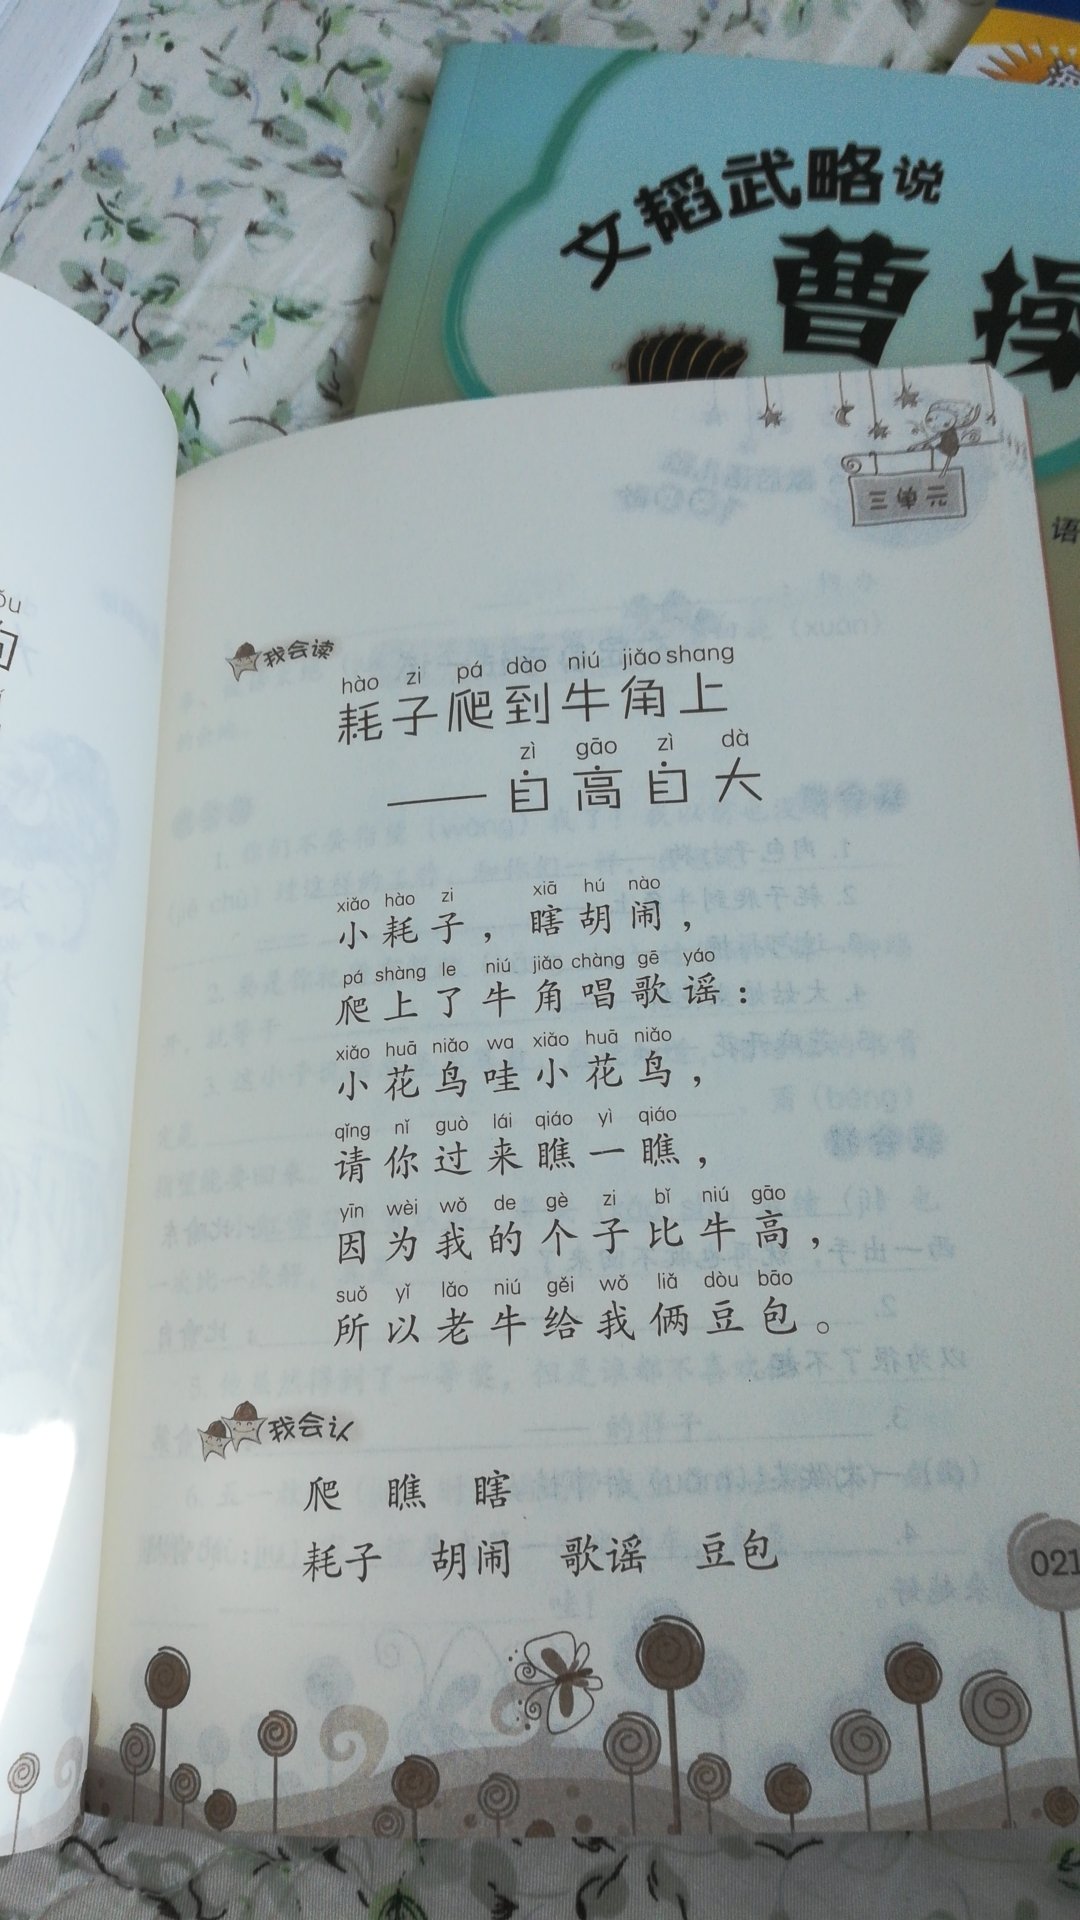 文韬武略说
曹操
语
三单元
我会读
hào zi pá dào niú jiǎo shang
耗子爬到牛角上
zì gāo zì dà
——自高自大
xiǎo hào zi xiā hú nào
小耗子，瞎胡闹，
pá shàng le niú jiǎo chàng gē yáo
爬上了牛角唱歌谣：
xiǎo huā niǎo wa xiǎo huā niǎo
小花鸟哇小花鸟，
qǐng nǐ guò lái qiáo yì qiáo
请你过来瞧一瞧，
yīn wèi wǒ de gè zi bǐ niú gāo
因为我的个子比牛高，
suǒ yǐ lǎo niú gěi wǒ liǎ dòu bāo
所以老牛给我俩豆包。
我会认
爬 瞧 瞎
耗子 胡闹 歌谣 豆包
021